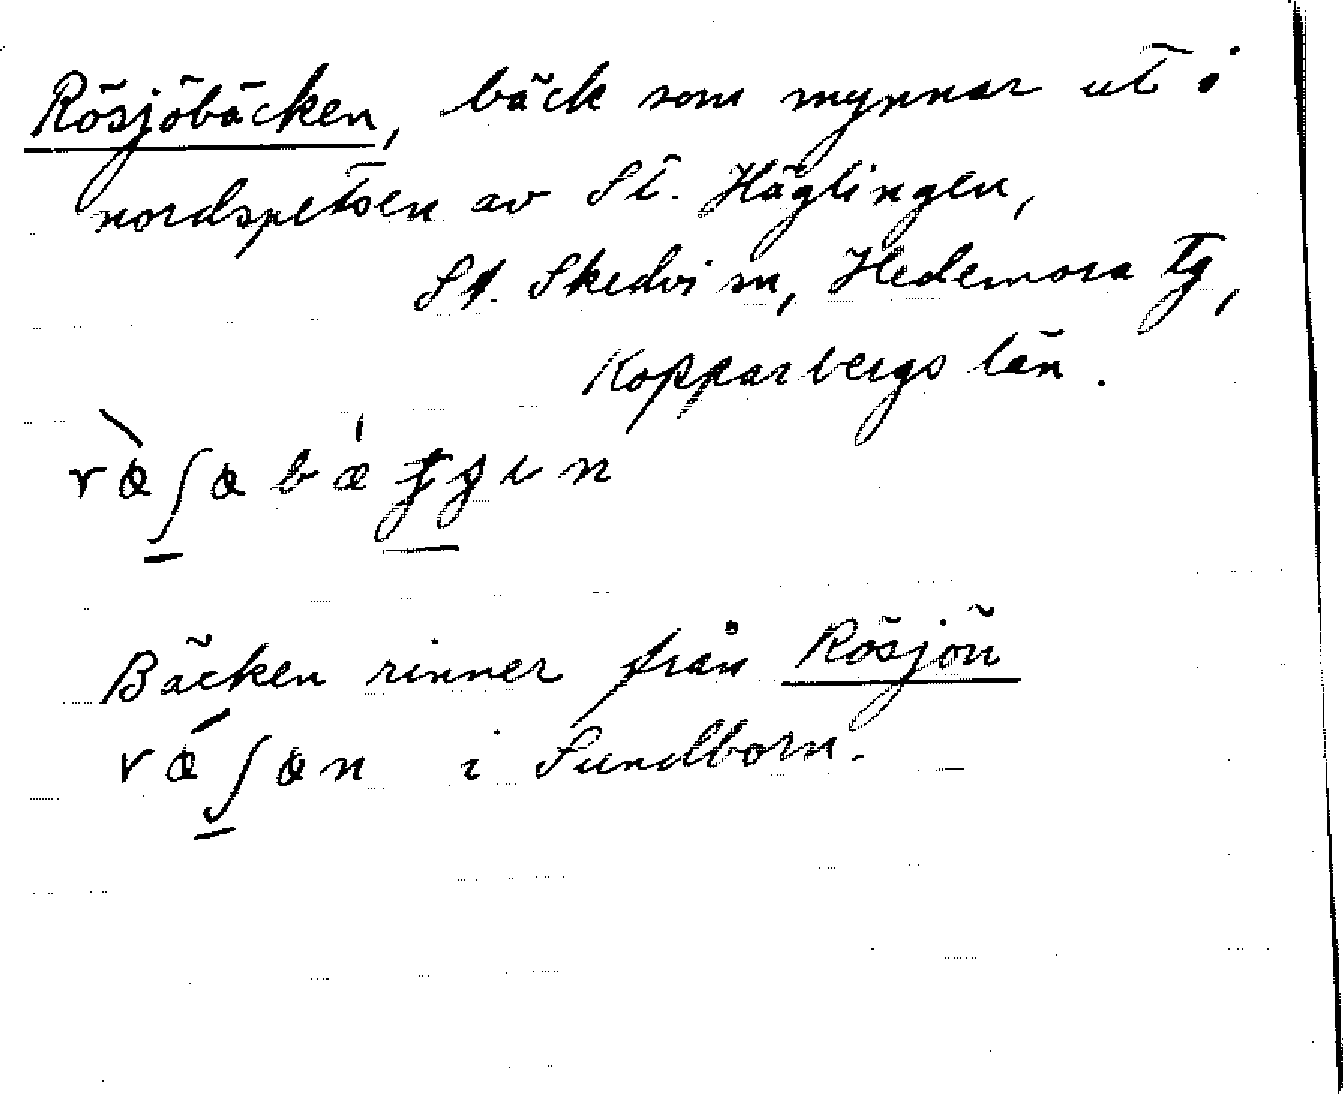 Rösjöbäcken, bäck som mynnar ut i
nordspetsen av St. Häglingen,
St. Skedvi sn, Hedemora Tg,
Kopparbergs län.
Bäcken rinner från Rösjön
i Sundborn.